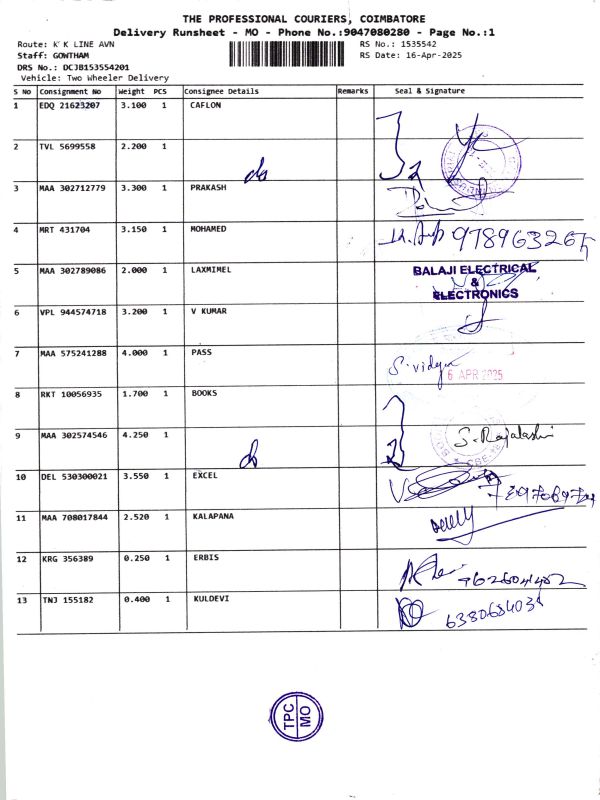 THE PROFESSIONAL COURIERS, COIMBATORE
Delivery Runsheet - MO - Phone No.:9047080280 - Page No.:1
Route: K K LINE AVN
RS No.: 1535542
Staff: GOWTHAM
RS Date: 16-Apr-2025
DRS No.: DCJB153554201
Vehicle: Two Wheeler Delivery
S No Consignment No Weight PCS Consignee Details Remarks Seal & Signature
1 EDQ 21623207 3.100 1 CAFLON
2 TVL 5699558 2.200 1
do
3 MAA 302712779 3.300 1 PRAKASH
4 MRT 431704 3.150 1 MOHAMED
5 MAA 302789086 2.000 1 LAXMIMEL BALAJI ELECTRICAL
&
ELECTRONICS
6 VPL 944574718 3.200 1 V KUMAR
7 MAA 575241288 4.000 1 PASS S. vidya
6 APR 2025
8 RKT 10056935 1.700 1 BOOKS
9 MAA 302574546 4.250 1 S. Rajalashi
do
10 DEL 530300021 3.550 1 EXCEL
11 MAA 708017844 2.520 1 KALAPANA
12 KRG 356389 0.250 1 ERBIS
13 TNJ 155182 0.400 1 KULDEVI
TPC
MO